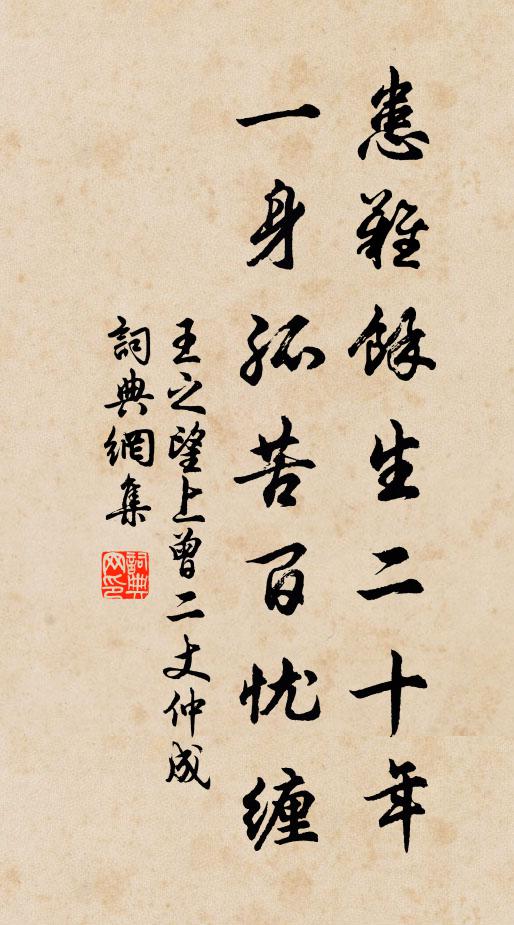 患難餘生二十年
一身孤苦百忧缠
王之望上曾二丈仲成
詞典網集
詞典網印